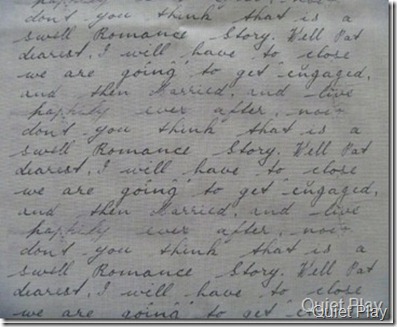 happily ever after, now
don't you think that is a
swell Romance Story. Well Pat
dearest, I will have to close
we are going to get engaged,
and then Married, and live
happily ever after, now
don't you think that is a
swell Romance Story. Well Pat
dearest, I will have to close
we are going to get engaged,
and then Married, and live
happily ever after, now
don't you think that is a
swell Romance Story. Well Pat
dearest, I will have to close
we are going to get
Quiet Play
Quiet Play